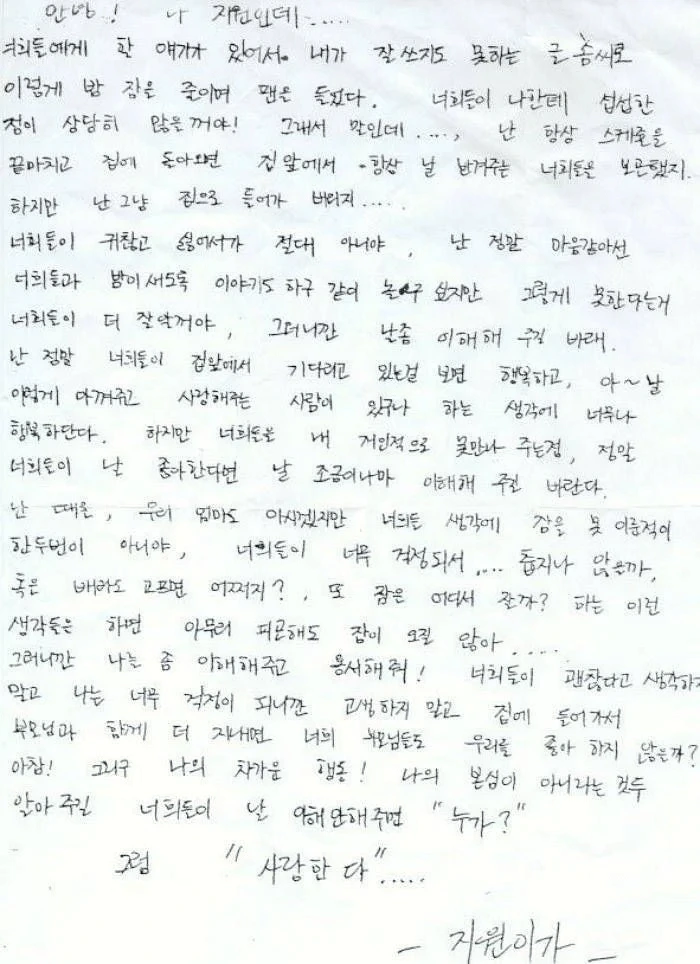 안녕! 나 지원인데.....
너희들에게 할 얘기가 있어서. 내가 잘 쓰지도 못하는 글 솜씨로
이렇게 밤 잠을 줄이며 펜은 들었다. 너희들이 나한테 섭섭한
점이 상당히 많을꺼야! 그래서 말인데...., 난 항상 스케줄을
끝마치고 집에 돌아오면 집앞에서 항상 날 반겨주는 너희들을 보곤했지.
하지만 난 그냥 집으로 들어가 버리지.....
너희들이 귀찮고 싫어서가 절대 아니야, 난 정말 마음같아선
너희들과 밤이새도록 이야기도 하구 같이 놀구 싶지만 그렇게 못한다는거
너희들이 더 잘알꺼야, 그러니깐 날좀 이해해 주길 바래.
난 정말 너희들이 집앞에서 기다리고 있는걸 보면 행복하고, 아~날
이렇게 아껴주고 사랑해주는 사람이 있구나 하는 생각에 너무나
행복하단다. 하지만 너희들을 내 개인적으로 못만나 주는점, 정말
너희들이 날 좋아한다면 날 조금이나마 이해해 주길 바란다.
난 때론, 우리 엄마도 아시겠지만 너희들 생각에 잠을 못 이룬적이
한두번이 아니야, 너희들이 너무 걱정되서.... 춥지나 않은까,
혹은 배라도 고프면 어쩌지?, 또 잠은 어디서 잘까? 하는 이런
생각들은 하면 아무리 피곤해도 잠이 오질 않아.....
그러니깐 나를 좀 이해해주고 용서해 줘! 너희들이 괜찮다고 생각하지
말고 나는 너무 걱정이 되니깐 고생하지 말고 집에 들어가서
부모님과 함께 더 지내면 너희 부모님들도 우리를 좋아 하지 않은까?
아참! 그리구 나의 차가운 행동! 나의 본심이 아니라는 것두
알아 주길 너희들이 날 이해안해주면 "누가?"
그럼 "사랑한다".....
- 지원이가 -